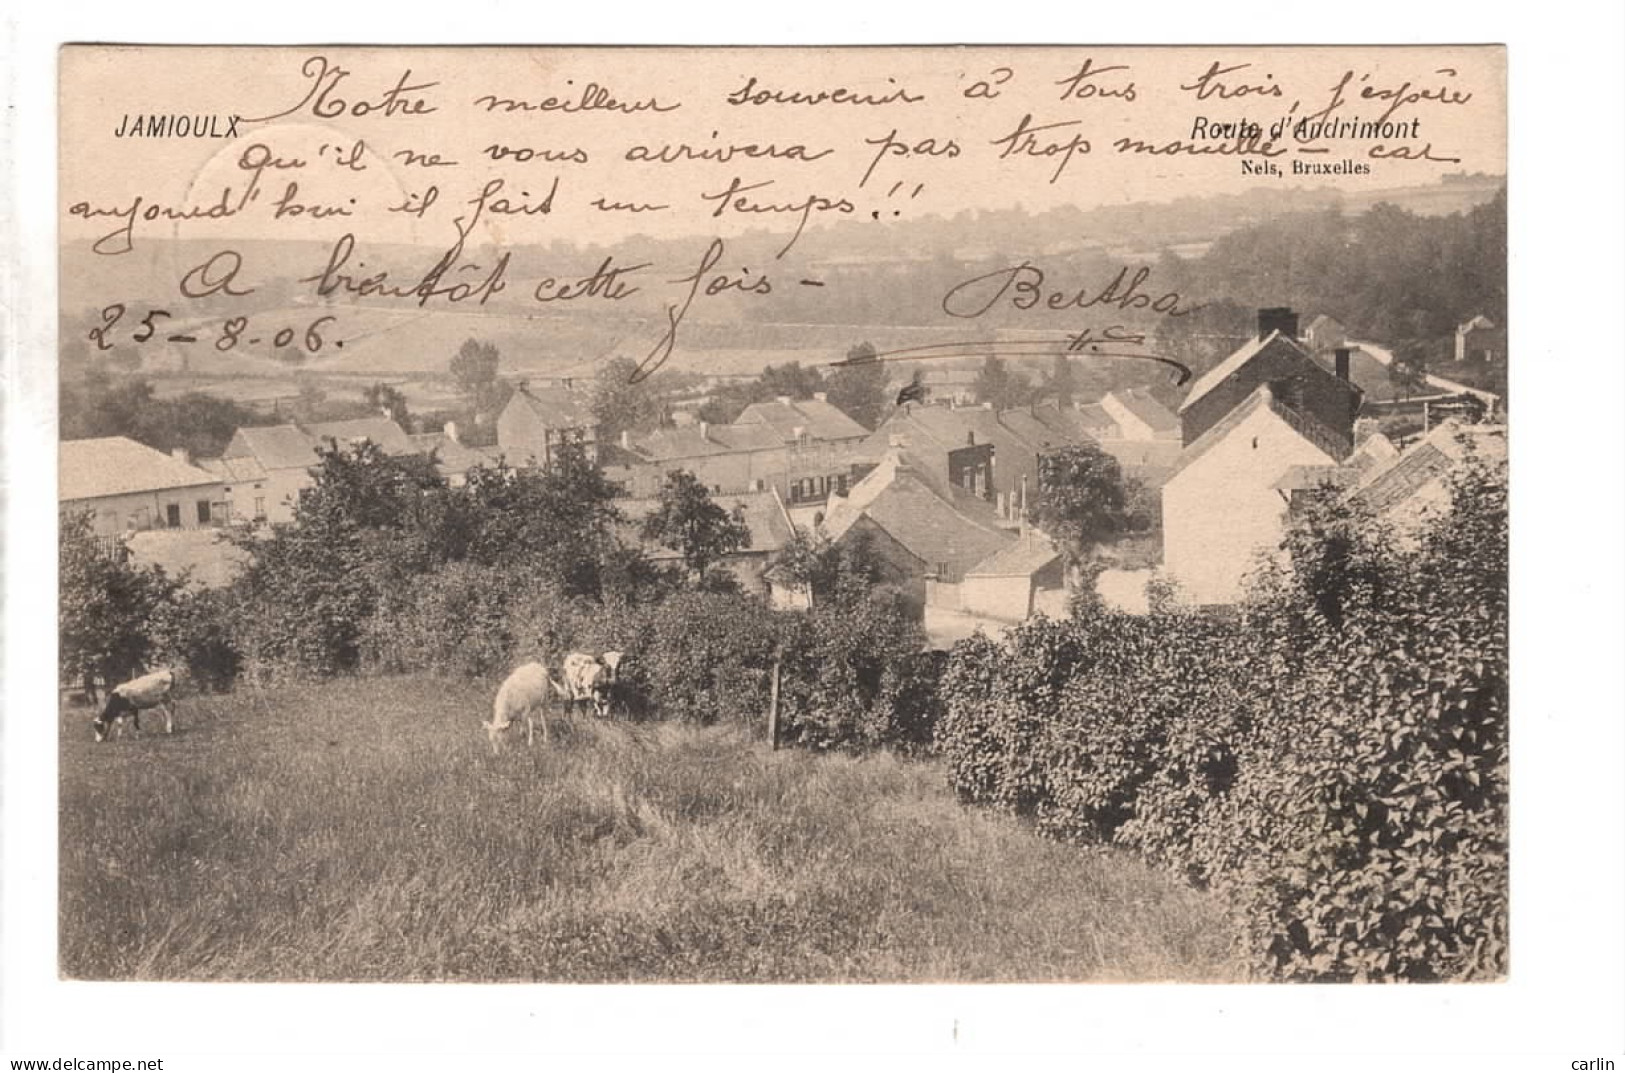 JAMIOULX
Notre meilleur souvenir à tous trois, j'espère
Route d'Andrimont
qu'il ne vous arrivera pas trop mouillé – car
Nels, Bruxelles
aujourd'hui il fait un temps!!
A bientôt cette fois –
Bertha
25-8-06.
delcampe.net
carlin